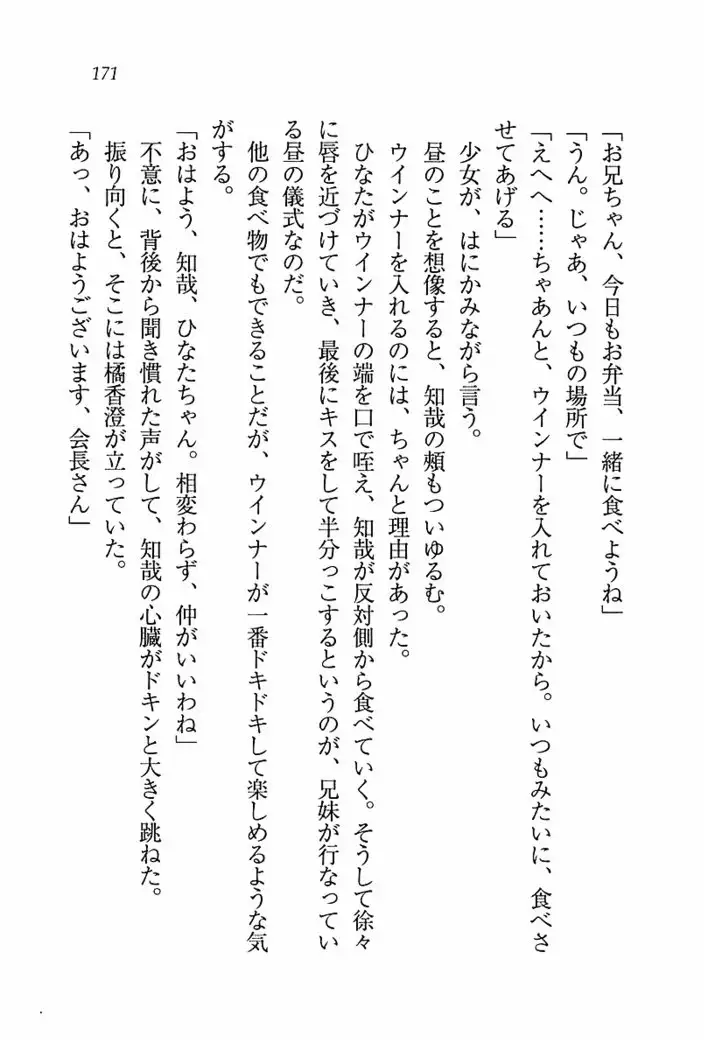 171
「お兄ちゃん、今日もお弁当、一緒に食べようね」
「うん。じゃあ、いつもの場所で」
「えへへ……ちゃあんと、ウインナーを入れておいたから。いつもみたいに、食べさ
せてあげる」
少女が、はにかみながら言う。
昼のことを想像すると、知哉の頰もついゆるむ。
ウインナーを入れるのには、ちゃんと理由があった。
ひなたがウインナーの端を口で咥え、知哉が反対側から食べていく。そうして徐々
に唇を近づけていき、最後にキスをして半分っこするというのが、兄妹が行なってい
る昼の儀式なのだ。
他の食べ物でもできることだが、ウインナーが一番ドキドキして楽しめるような気
がする。
「おはよう、知哉、ひなたちゃん。相変わらず、仲がいいわね」
不意に、背後から聞き慣れた声がして、知哉の心臓がドキンと大きく跳ねた。
振り向くと、そこには橘香澄が立っていた。
「あっ、おはようございます、会長さん」